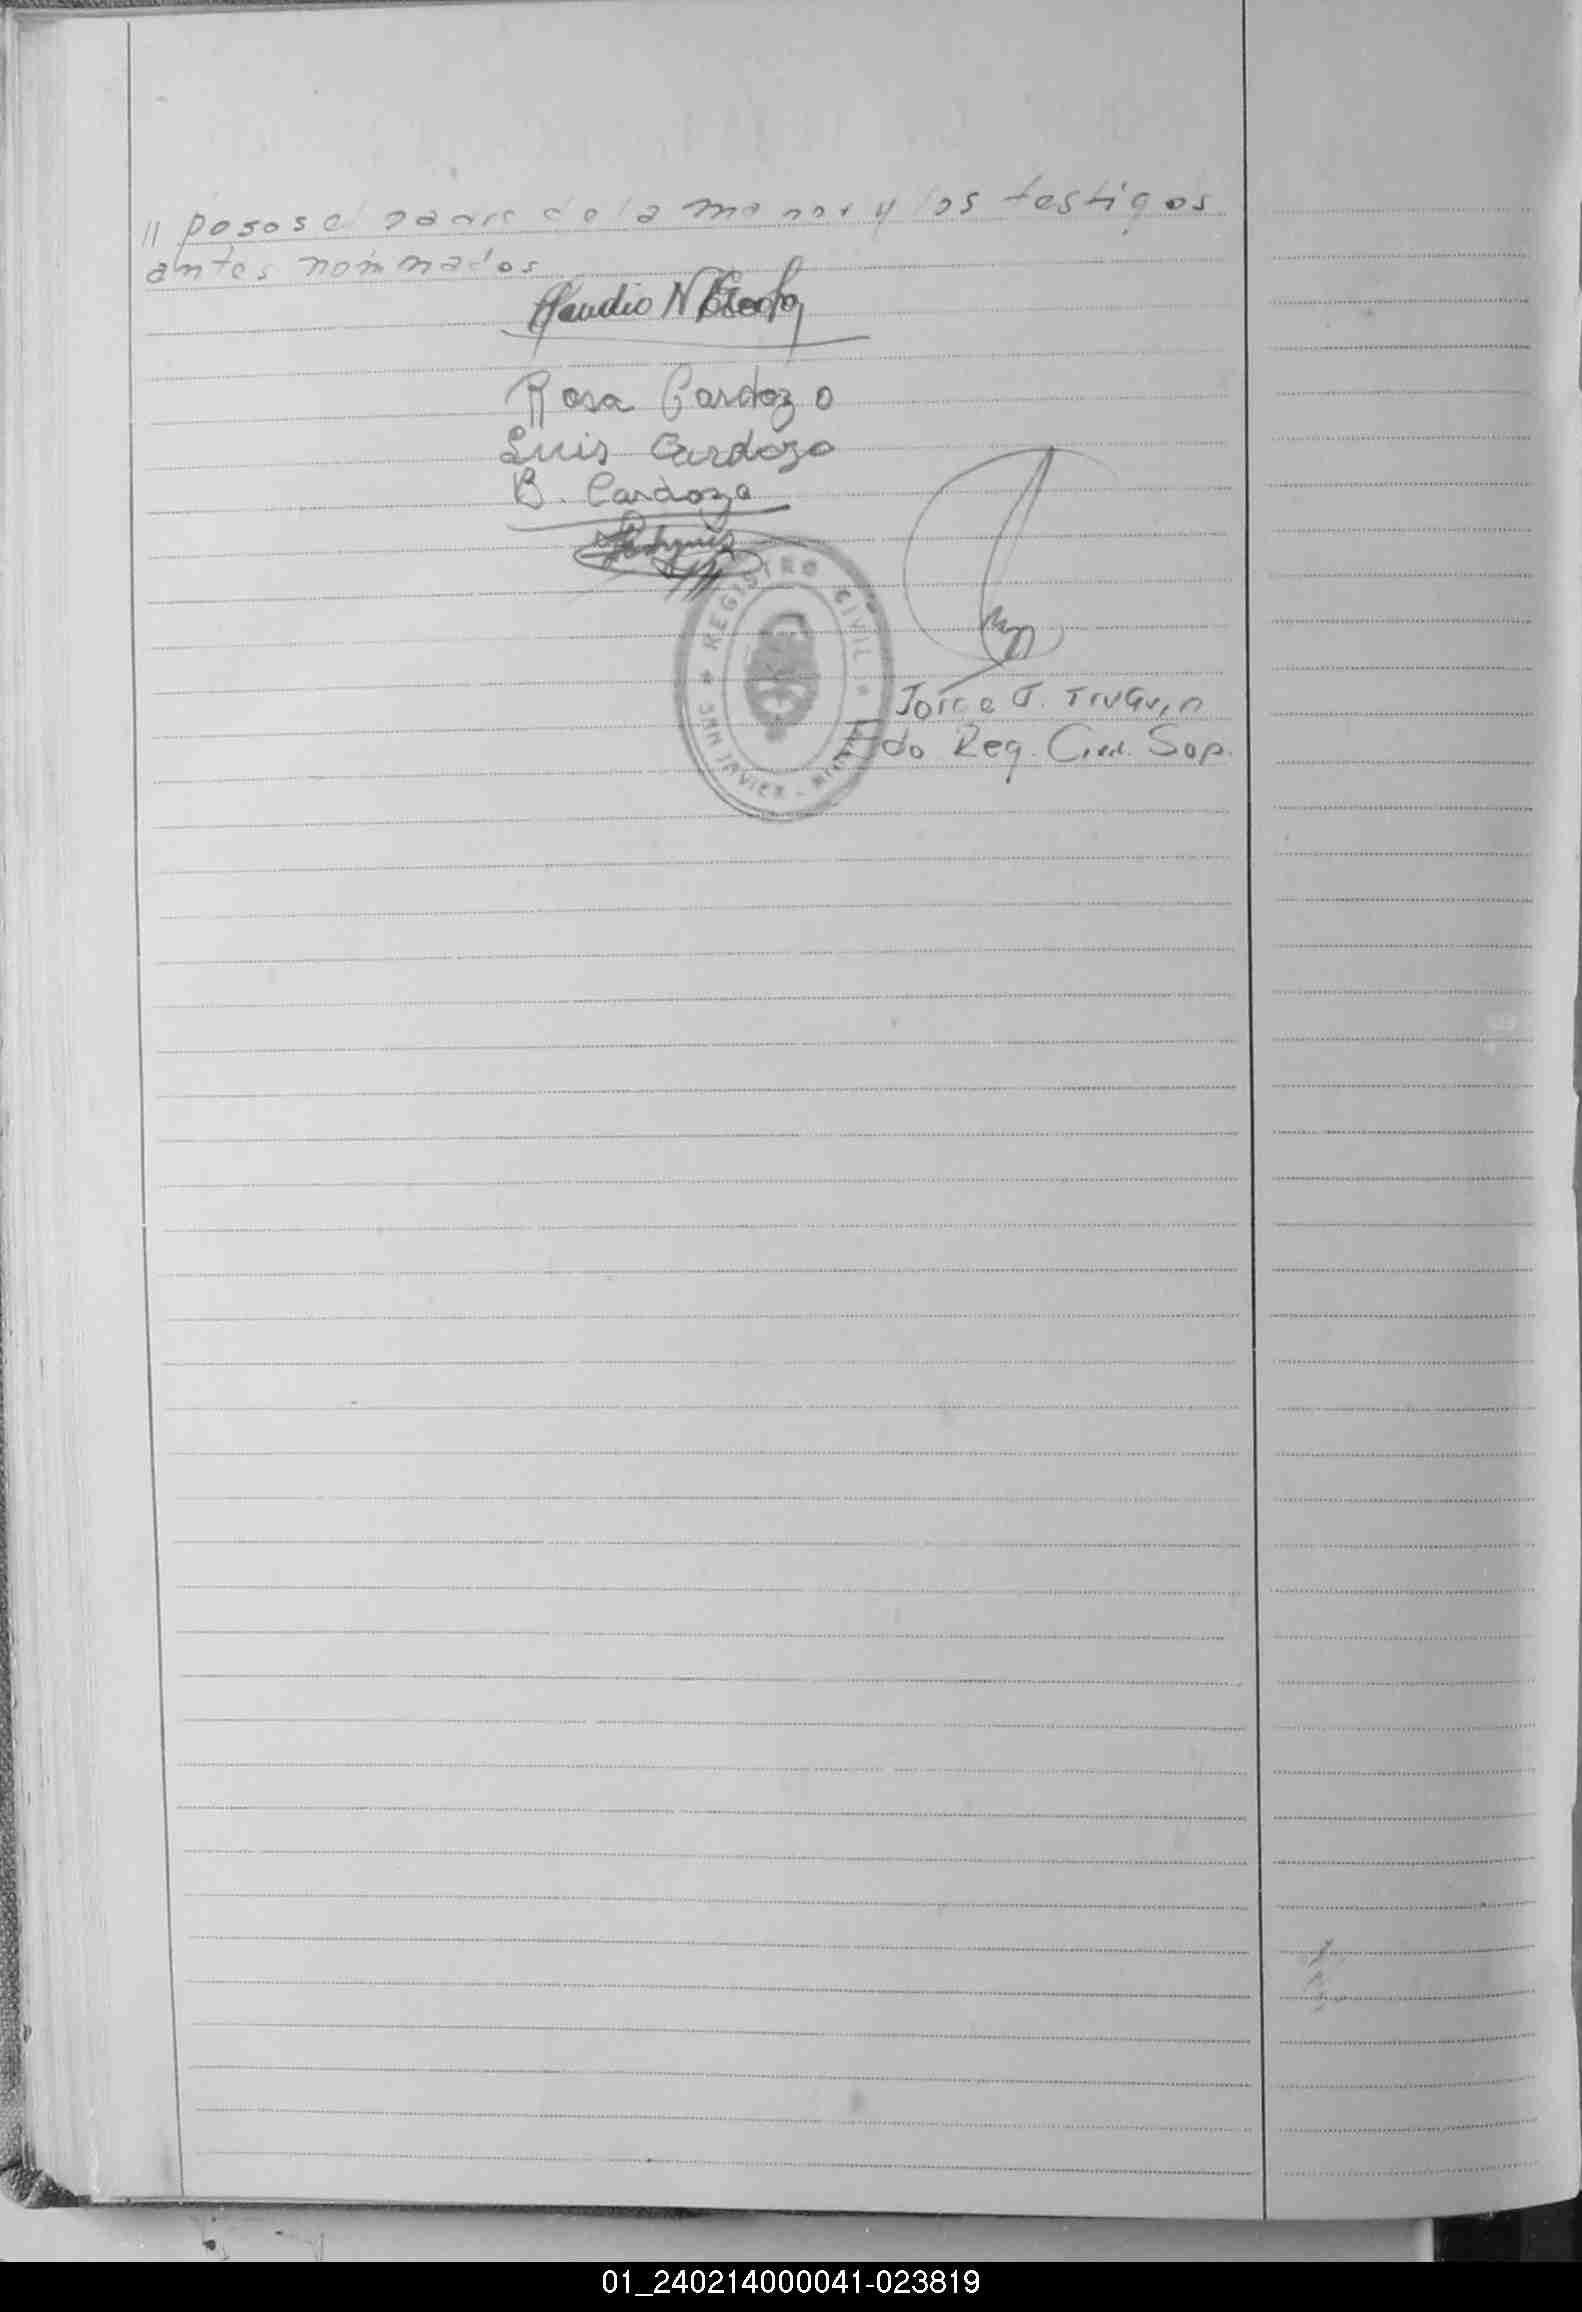 // posos el padre de la menor y los testigos
antes nominados
Claudio N
Rosa Cardozo
Luis Cardozo
B. Cardozo
REGISTRO CIVIL
SAN JAVIER -
Jorge J.
Edo Reg. Civil. Sup.
01_240214000041-023819